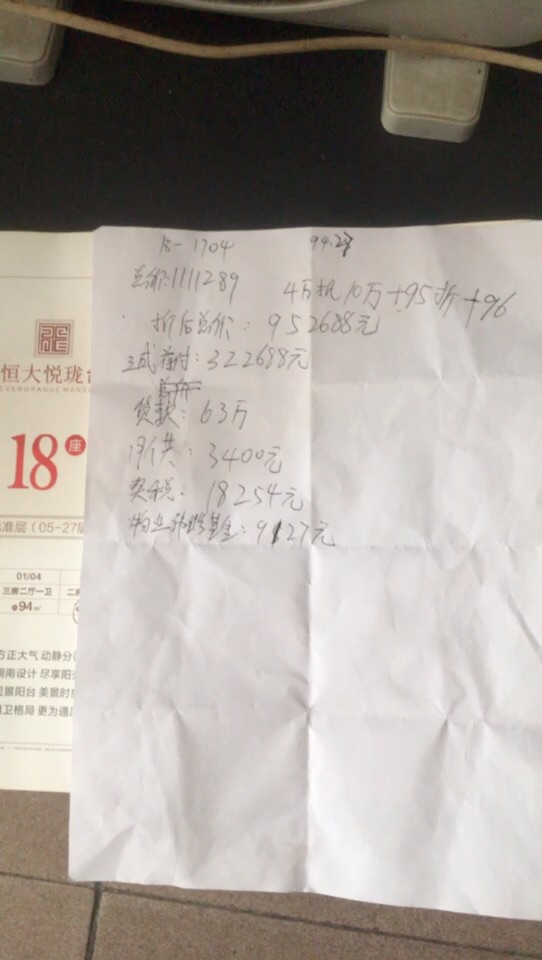 18-1704 94.27
总价:1111289 4万抵10万+95折+96
折后总价:952688元
三成首付:322688元
贷款:63万
月供:3400元
契税:18254元
物业维修基金:9127元
恒大悦珑台
EVERGRANDE MANS
18座
标准层(05-27层
01/04
三房二厅一卫
94㎡
方正大气 动静分
景阳台 美景时
卫格局 更为通